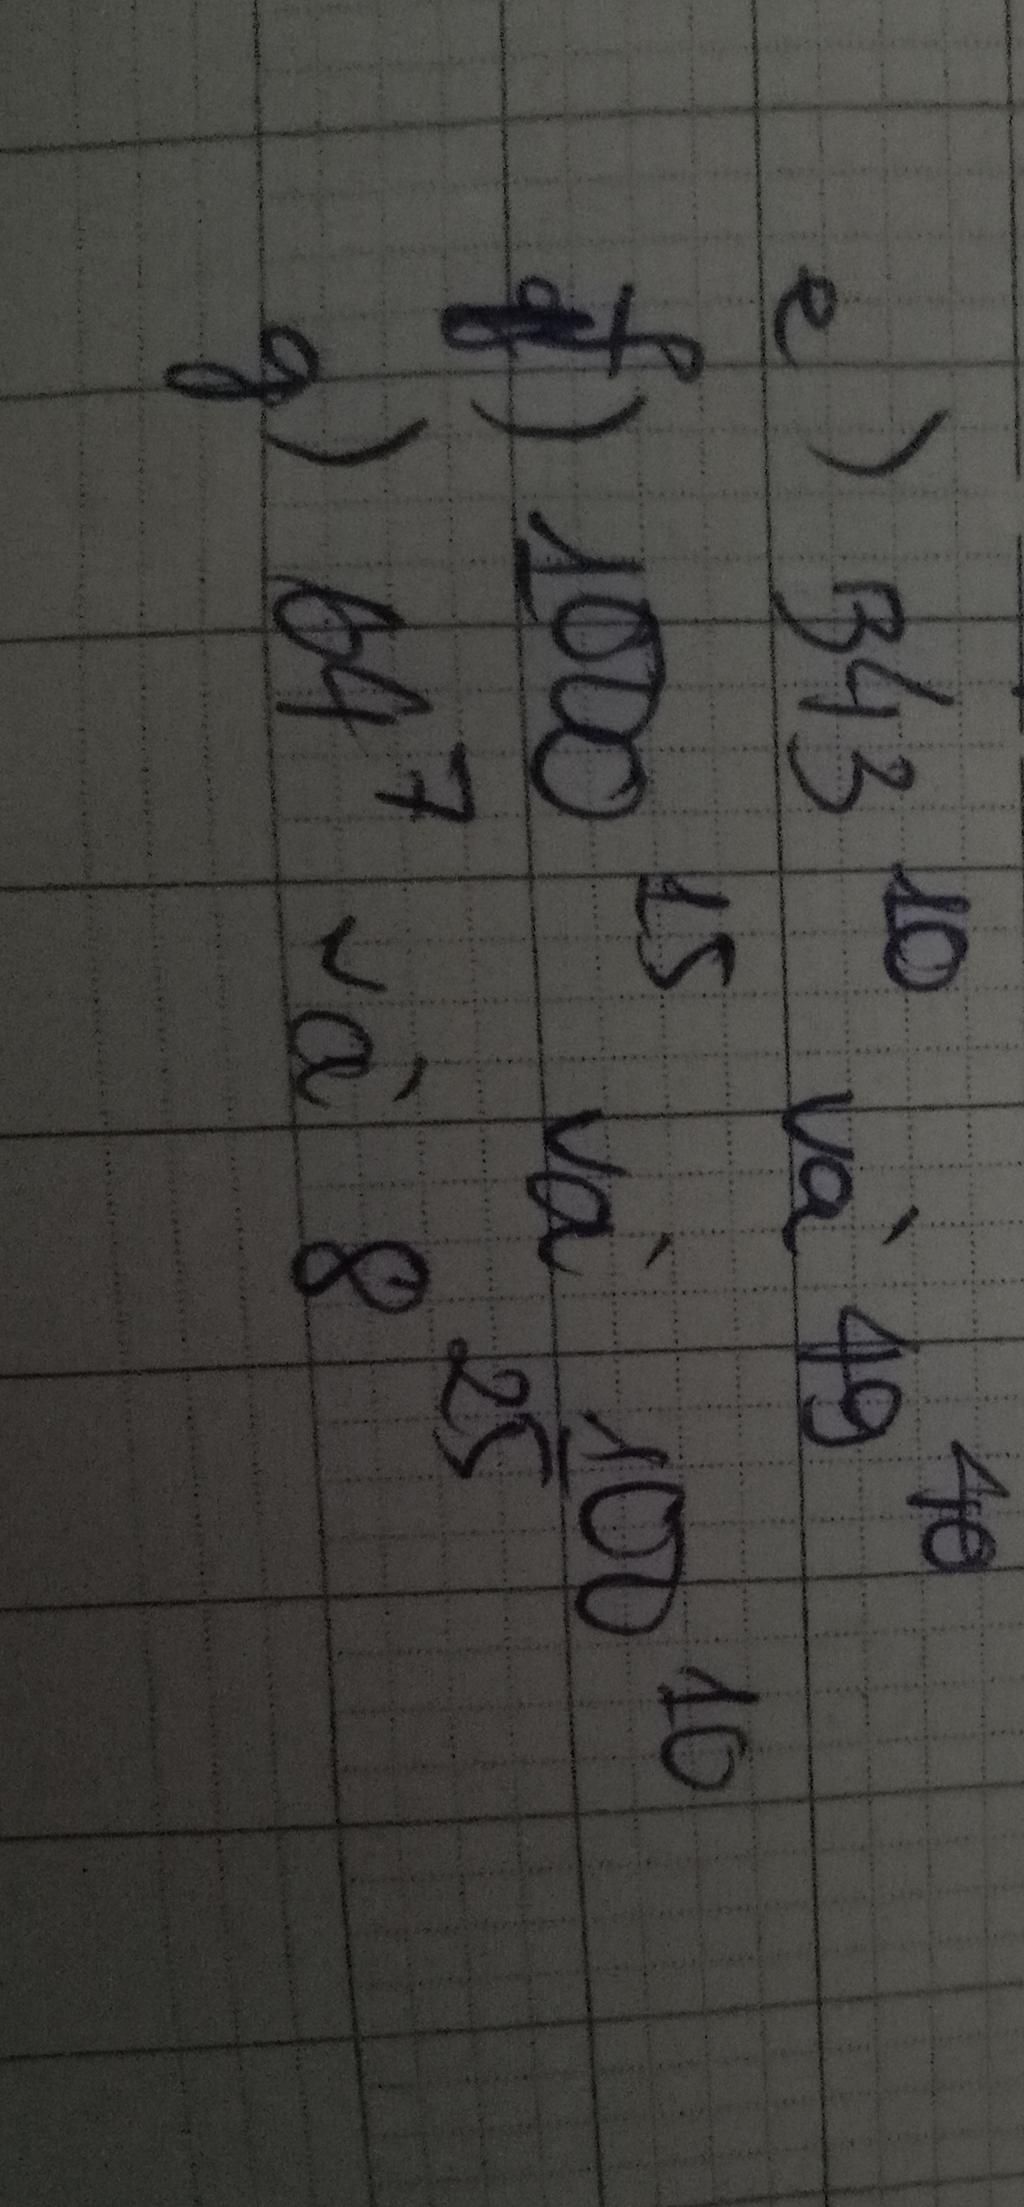 e) 343^10 và 49^40
f) 1000^15 và 100^10
g) 64^7 và 8^25